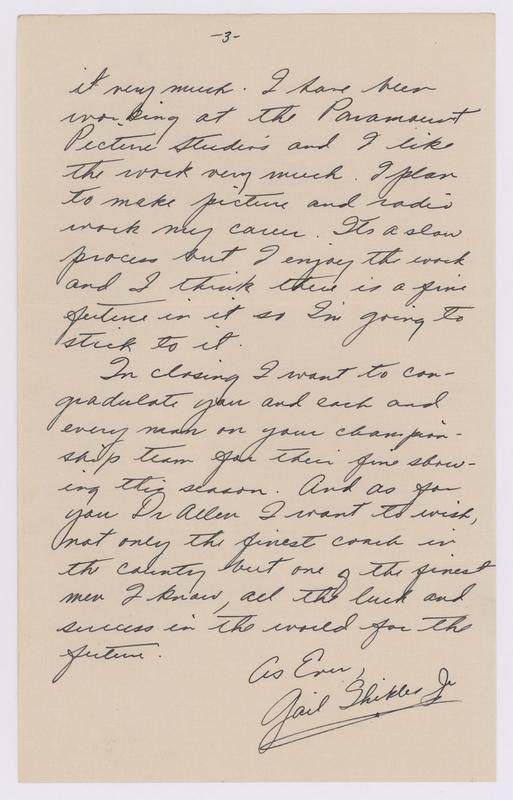 -3-
it very much. I have been
working at the Paramount
Picture Studios and I like
the work very much. I plan
to make picture and radio
work my career. Its a slow
process but I enjoy the work
and I think there is a fine
future in it so I'm going to
stick to it.
In closing I want to con-
gradulate you and each and
every man on your champion-
ship team for their fine show-
ing this season. And as for
you Dr Allen I want to wish,
not only the finest coach in
the county but one of the finest
men I know, all the luck and
success in the world for the
future.
As Ever,
Gail Shikles Jr